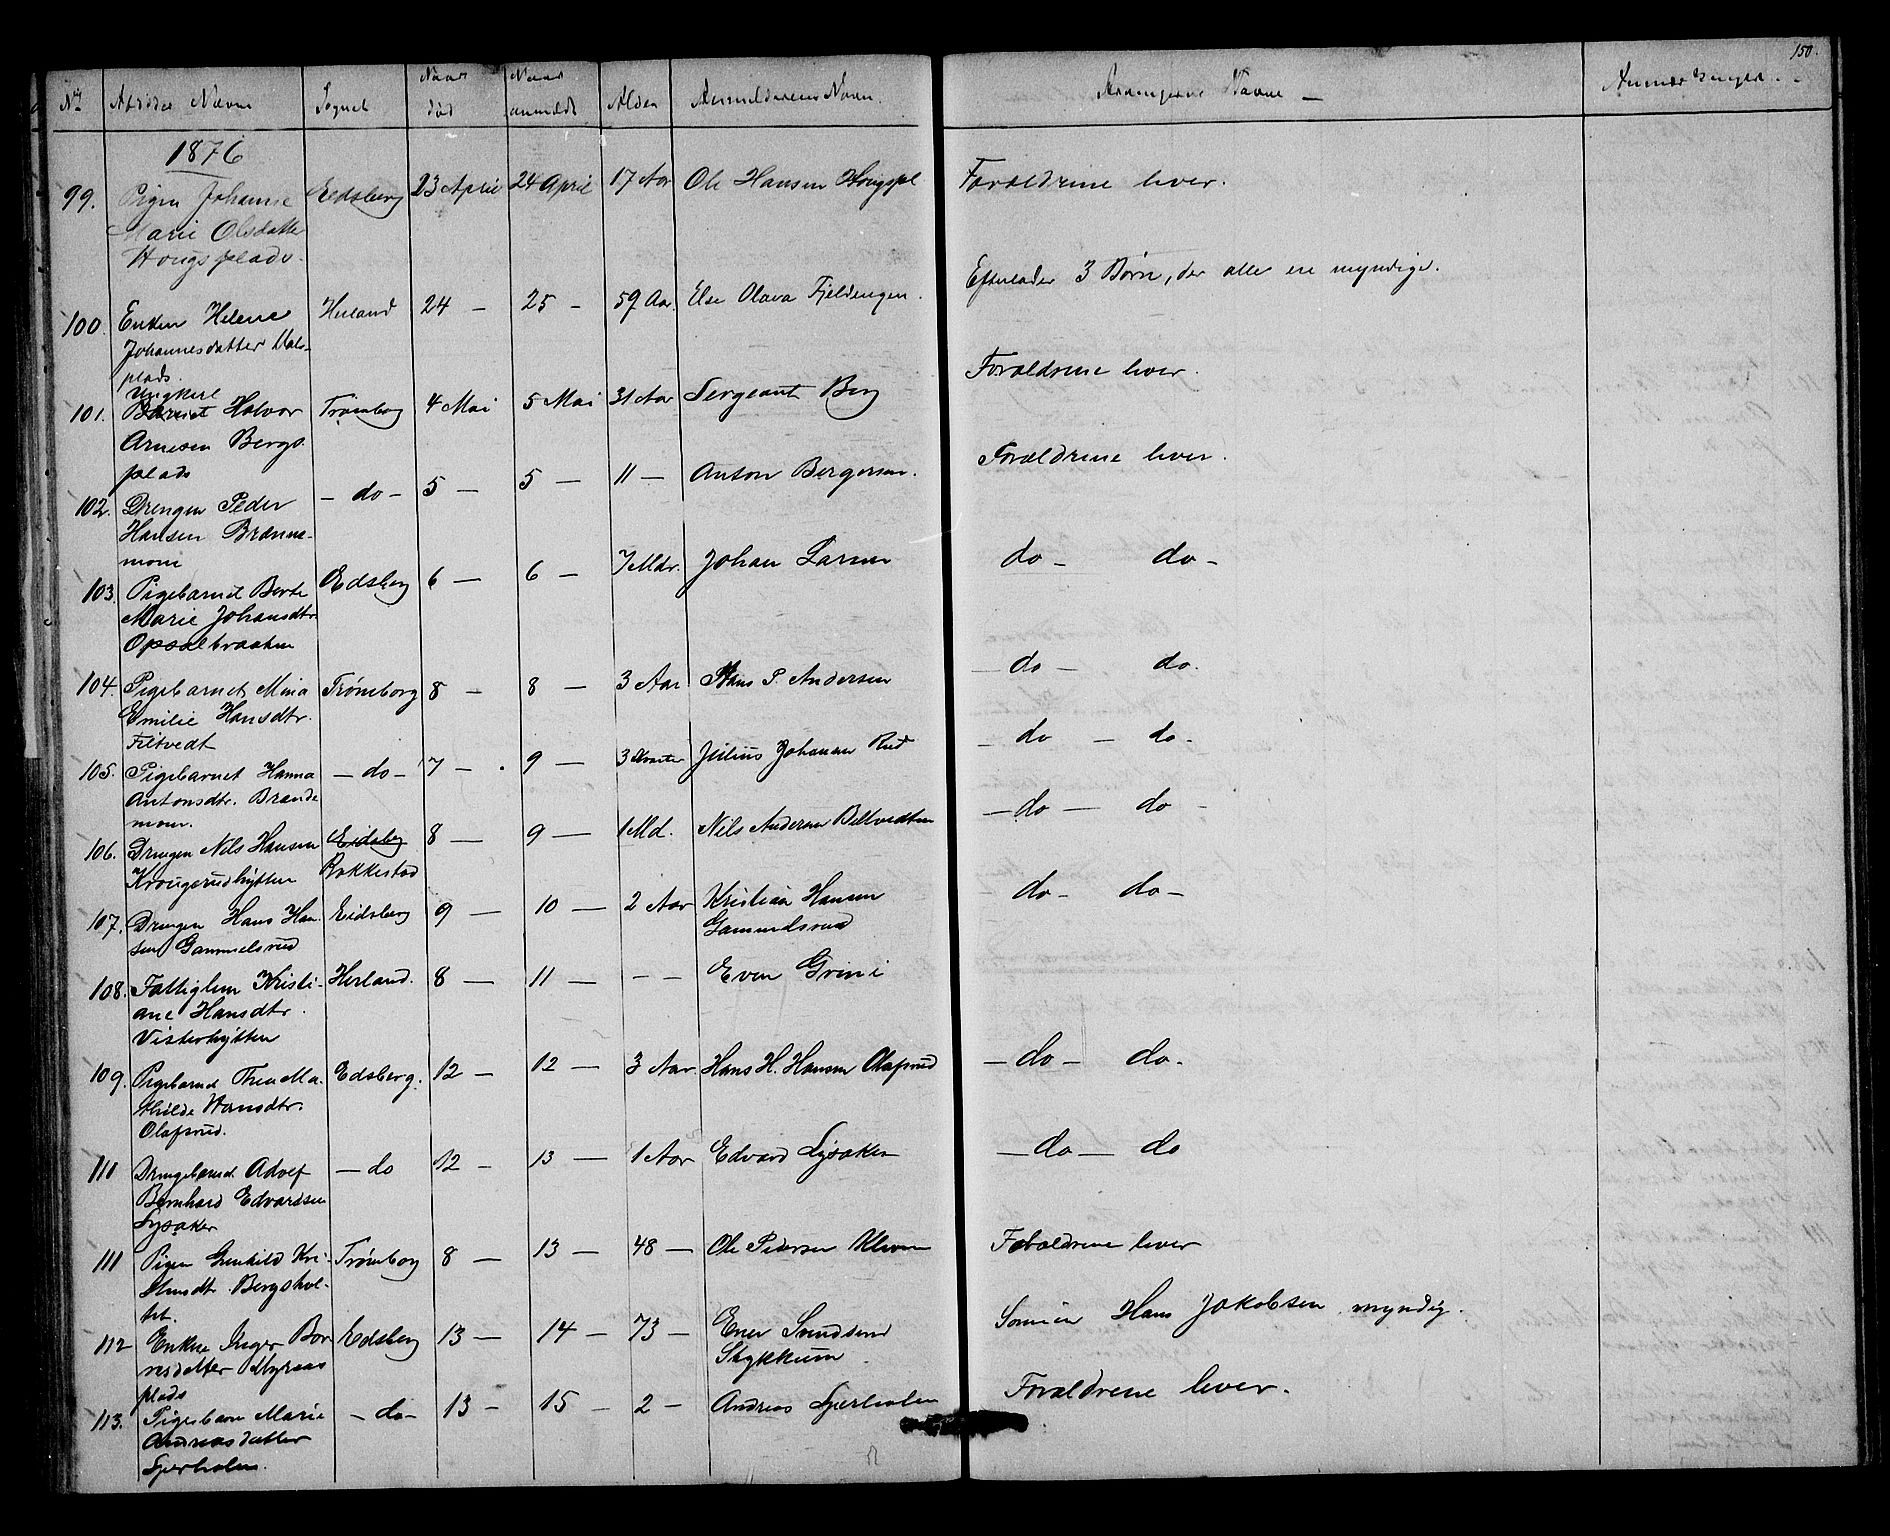 150.
No Afdødes Navn Sognet Naar død Naar anmeldt Alder Anmelderens Navn Arvingernes Navne — Anmærkninger.
1876
99. Pigen Johanne Eidsberg 23 April 24 April 17 Aar Ole Hansen Hougspl Forældrene lever.
Marie Olsdatter
Hougsplads.
100. Enken Helene Herland 24 — 25 — 59 Aar Else Olava Fjeldengen. Efterlader 3 Børn, der alle ere myndige.
Johannesdatter
plads.
Ungkarl
101. Barnet Halvor Trømborg 4 Mai 5 Mai 31 Aar Sergeant Berg Forældrene lever.
Arnesen Bergs
plads
102. Drengen Peder — do — 5 — 5 — 11 — Anton Bergersen. Forældrene lever.
Hansen Brænne-
moen
103. Pigebarnet Berte Edsberg 6 — 6 — 7 Mdr. Johan Larsen do — do —
Marie Johansdtr
Opsalbraaten
104. Pigebarnet Mina Trømborg 8 — 8 — 3 Aar Hans P. Andersen — do — do.
Emilie Hansdtr.
Filtvedt
105. Pigebarnet Hanna — do — 7 — 9 — 3 Julius Johansen Rud — do — do —
Antonsdtr. Brænde
moen.
106. Drengen Nils Hansen Eidsberg 8 — 9 — 1 Md. Nils Andersen — do — do —
Krougerudhytten Rakkestad
107. Drengen Hans Han- Eidsberg 9 — 10 — 2 Aar Kristian Hansen do — do —
sen Gammelsrud Gammelsrud
108. Fattiglem Kristi- Herland. 8 — 11 — — — Even Grini
ane Hansdtr.
Visterhytten
109. Pigebarnet Thea Ma- Edsberg. 12 — 12 — 3 Aar. Hans H. Hansen Olafsrud — do — do —
thilde Hansdtr.
Olafsrud.
111 Drengebarnet Adolf — do 12 — 13 — 1 Aar Edvard Lysaker — do — do
Bernhard Edvardsen
Lysaker
111 Pigen Gunhild Kri- Trømborg 8 — 13 — 48 — Ole Pedersen Forældrene lever
stensdtr. Bergshol-
tet.
112 Enken Inger Edsberg 13 — 14 — 73 — Svendsen Sønnen Hans Jakobsen myndig.
Myraas Stykkum
plads
113. Pigebarn Marie — do — 13 — 15 — 2 — Andreas Forældrene lever.
Andreasdatter